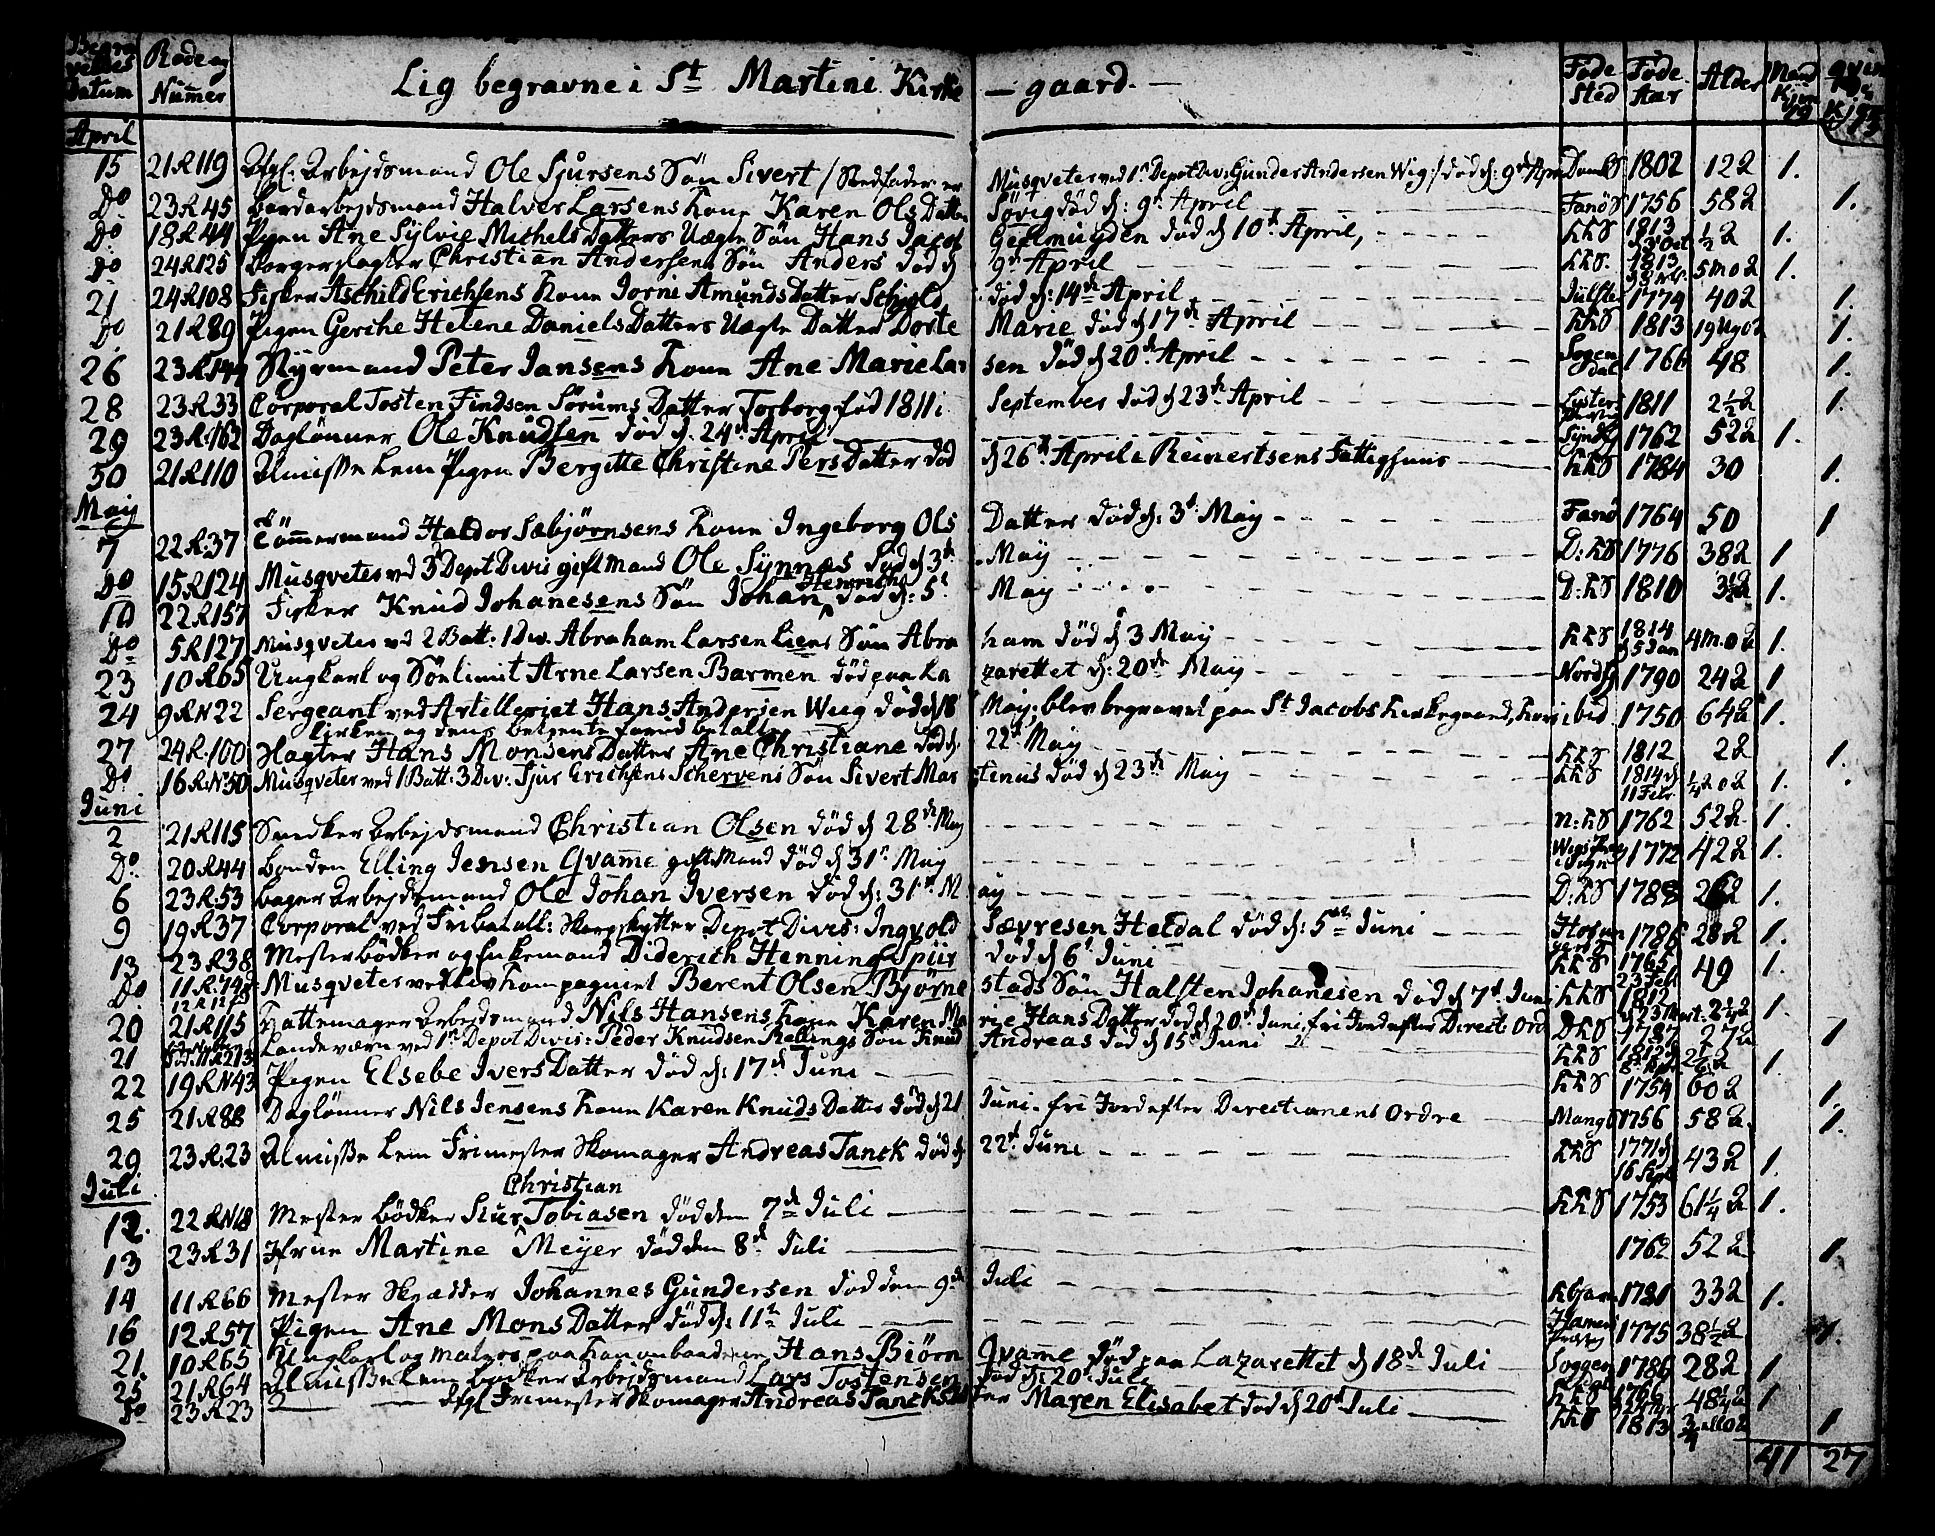 Begravelses Datum | Rode og Numer | Lig begravne i St Martini Kirke — gaard. — | Føde Sted | Føde Aar | Alder | Mand Kjøn | Qvinde Kjøn
April
15 | 21 R 119 | Afgl. Arbejdsmand Ole Sjursens Sön Sivert / Stedfader er Musqveter ved 1st Depot Div: Gunder Andersen Wig:/ död d: 9d Apr | | 1802 | 12 2 | 1.
Do | 23 R 45 | Bordarbejdsmand Halver Larsens Kone Karen Ols Datter Søvig död d: 9d April | Fanø S | 1756 | 58 2 | 1.
Do | 18 R 44 | Pigen Ane Sylvie Michels Datters Uægte Sön Hans Jacob Geelmuyden död d 10d April, | KKS | 1813 | ½ 2 | 1.
Do | 24 R 125 | Borgerslagter Christian Andersens Sön Anders död d 9d April | KKS. | 1813 | 5 mo 2 | 1.
21 | 24 R 108 | Fisker Aschild Erichsens Kone Jorni Amunds Datter Schjold död d: 14de April | Jülster | 1774 | 40 2 | 1.
Do | 21 R 89 | Pigen Gerche Helene Daniels Datters Uægte Datter Dorte Marie död d 17de April | KKS | 1813 | 19 Ug | 1.
26 | 23 R 144 | Styrmand Peter Jansens Kone Ane Marie Larsen död d 20de April | Sogendal | 1766 | 48 | 1.
28 | 23 R. 33 | Corporal Tosten Findsen Sørums Datter Torborg fød 1811 i September død d 23de April | Lyster | 1811 | 2½ 2 | 1.
29 | 23 R. 162 | Daglønner Ole Knudsen død d. 24d April | | 1762 | 52 2 | 1.
30 | 21 R 110 | Almisse Lem Pigen Bergitte Christine Pers Datter död d 26de April i Reinertsens Fattighuus | KKS | 1784 | 30 | 1.
May
7 | 22 R. 37 | Tömmermand Haldor Sæbjørnsens Kone Ingeborg Ols Datter död d: 3d May | Fanø | 1764 | 50 | 1
Do | 15 R 124 | Musqveter ved 3 Depot Divis gift Mand Ole Synnæs död d 3de May | D: KS | 1776 | 38 2 | 1
10 | 22 R 157 | Fisker Knud Johanesens Sön Johan Henrich död d: 5t May | D: KS | 1810 | 3½ 2 | 1.
Do | 5 R 127 | Musqveter ved 2 Batt: 1 Div. Abraham Larsen Liens Sön Abraham død d 3 May | KKS | 1814 d 5 Jan | 4 mo 2 | 1.
23 | 10 R 65 | Ungkarl og Sönlimit Arne Larsen Barmen död paa Lazarettet d: 20de May | Nordfj | 1790 | 24 2 | 1
24 | 9 R N 22 | Sergeant ved Artilleriet Hans Andersen Wiig död d 18 May, blev begravet paa St Jacobs Kirkegaard, hvor | ibid | 1750 | 64 2 | 1.
Kirken og dens betjente forud betalt
27 | 24 R. 100 | Slagter Hans Monsens Datter Ane Christiane död d. 22d May | KKS | 1812 | 2 2 | 1.
Do | 16 R No 50 | Musqveter ved 1 Batt: 3 Div: Sjur Erichsens Schervens Sön Sivert Martinus död d 23de May | KKS | 1814 d 11 Febr | ¼ 2 | 1.
Juni
2 | 21 R 115 | Snedker Arbejdsmand Christian Olsen död d 28de May | N: KS | 1762 | 52 2. | 1.
Do | 20 R 44 | Bonden Elling Jensen Qvame gift Mand död d 31t May | | 1772 | 42 2 | 1.
6 | 23 R. 53 | Bager Arbejdsmand Ole Johan Iversen död d: 31t May | D: KS | 1788 | 26 2 | 1.
9 | 19 R. 37 | Corporal ved Fribatall: Skarpskytter Depot Divis: Ingvold Sævresen Heldal död d: 5te Juni | | 1786 | 28 2 | 1.
13 | 23 R 38 | Mesterbödker og Enkemand Diderich Henning Spür død d 6t Juni | KKS | 1765 23 Feb | 49 | 1.
Do | 11 R. 74 | Musqveter ved Liv Kompagniet Berent Olsen Bjørnestads Sön Halsten Johanesen död d 7d Juni | KKS | 1812 d 23 Mart: | 2¼ 2 | 1.
20 | 21 R 115 | Hattemager Arbejdsmand Nils Hansens Kone Karen Marie Hans Datter död d 20d Juni, fri Jord efter Direct: Ord | DKS | 1787 | 27 2 | 1
21 | | Landeværn ved 1st Depot Divis: Peder Knudsen Rellings Sön Knud Andreas död d 15d Juni | KKS | 1812 | | 1.
22 | 19 R N 43 | Pigen Elsebe Ivers Datter död d: 17d Juni | KKS | 1754 | 60 2 | 1.
25 | 21 R. 88 | Daglønner Nils Jensens Kone Karen Knuds Datter död d 21 Juni. fri Jord efter Directionens Ordre | Mang | 1756 | 58 2. | 1.
29 | 23 R. 23 | Almisse Lem Frimester Skomager Andreas Tanck död d 22d Juni | KKS | 1771 d 16 Sept | 43 2 | 1.
Juli
12. | 22 R N 18 | Mester Bödker Siur Christian Tobiasen død den 7de Juli | KKS | 1753 | 61¼ 2 | 1.
13 | 23 R 31 | Frue Martine Meyer død den 8d Juli | 1762 | 52 2 | 1.
14 | 11 R 66 | Mester Skrædder Johannes Gundersen død den 9de Juli | | 1781 | 33 2 | 1.
16 | 12 R 57 | Pigen Ane Mons Datter död d: 11te Juli | | 1775 | 38½ 2 | 1.
21. | 10 R 65 | Ungkarl og Matros paa Kanonbaadene Hans Biørn Qvame död paa Lazarettet d 18de Juli | Soggen | 1786 | 28 2 | 1
25 | 21 R 64 | Almisse Lem Bødker Arbejdsmand Lars Tostensen död d: 20d Juli | KKS | 1766 | 48¼ 2 | 1
Do | 23 R 23 | Afgl Frimester Skomager Andreas Tancks Datter Maren Elisabet död d 20d Juli | KKS | 1813 | ¾ | 1
41 | 27